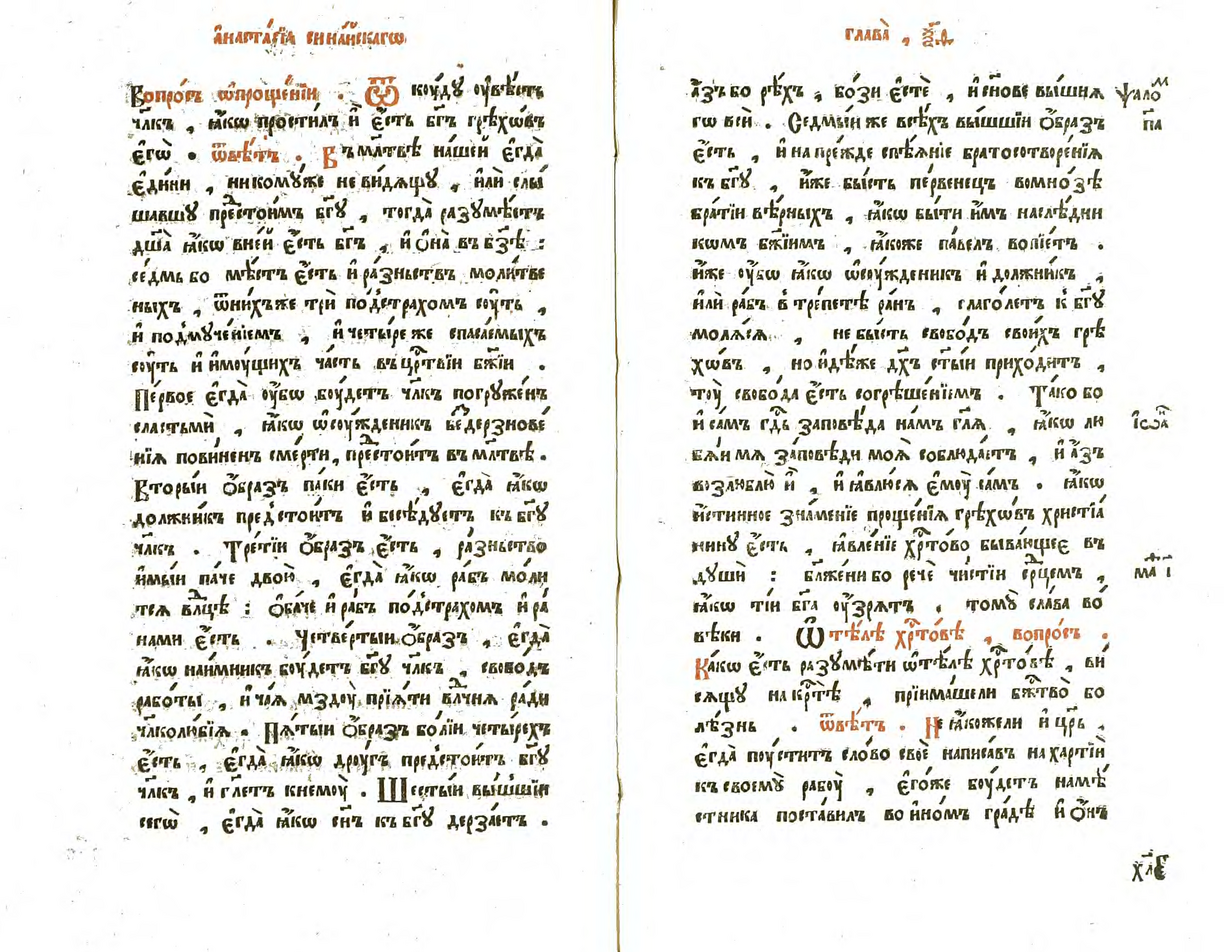 а҆наста́сїѧ сїна́йскагѡ
Вопро́съ ѡ҆проще́нїи . Ѿ кꙋ́дꙋ оу҆вѣ́сть
чл҃къ , ꙗ҆́кѡ прости́лъ и҆̀ є҆́сть бг҃ъ грѣхѡ́въ
є҆гѡ̀ . ѿвѣ́тъ . Въ мл҃твѣ на́шей є҆гда̀
є҆ди́ни , никомꙋ́же неви́дѧщꙋ , и҆лѝ слы́
шавшꙋ предстои́мъ бг҃ꙋ , тогда̀ разꙋмѣ́етъ
дш҃а̀ ꙗ҆́кѡ вне́й є҆́сть бг҃ъ , и҆ ѻ҆на̀ въ бз҃ѣ :
се́дмь бо мѣ́стъ є҆́сть и҆ ра́зньствъ моли́тве
ныхъ , ѿни́хъже трѝ под̾стра́хомъ сꙋ́ть ,
и҆ под̾мꙋче́нїемъ , и҆ четы́реже спаса́емыхъ
сꙋ́ть и҆ и҆мꙋ́щихъ ча́сть въ црⷭ҇твїи бж҃їи .
Пе́рвое є҆гда̀ оу҆́бѡ бꙋ́детъ чл҃къ погрꙋже́нъ
сластьмѝ , ꙗ҆́кѡ ѡ҆сꙋжде́никъ без̾дерзнове́
нїѧ пови́ненъ сме́рти, предстои́тъ въ мл҃твѣ .
Вторы́й ѻ҆́бразъ па́ки є҆́сть , є҆гда̀ ꙗ҆́кѡ
должни́къ предстои́тъ и҆ бесѣ́дꙋетъ къ бг҃ꙋ
чл҃къ . Тре́тїй ѻ҆́бразъ є҆́сть , ра́зньство
и҆мы́й па́че двою̀ , є҆гда̀ ꙗ҆́кѡ ра́бъ мо́ли
тсѧ влⷣцѣ : Ѻ҆ба́че и҆ ра́бъ под̾стра́хомъ и҆ ра́
нами є҆́сть . Четве́ртый ѻ҆́бразъ , є҆гда̀
ꙗ҆́кѡ нае́мникъ бꙋ́детъ бг҃ꙋ чл҃къ , свобо́дъ
рабо́ты , и҆ ча́ѧ мздꙋ̀ прїѧ́ти влⷣчнѧ ра́ди
чл҃колю́бїѧ . Пѧ́тый ѻ҆́бразъ бо́лїй четы́рехъ
є҆́сть , є҆гда̀ ꙗ҆́кѡ дрꙋ́гъ предстои́тъ бг҃ꙋ
чл҃къ , и҆ гл҃етъ кнемꙋ̀ . Шесты́й вы́шшїй
сегѡ̀ , є҆гда̀ ꙗ҆́кѡ сн҃ъ къ бг҃ꙋ держа́етъ .
глава̀ ,
А҆́зъ бо рѣ́хъ , бо́зи є҆стѐ , и҆ сы́нове вы́шнѧ
гѡ всѝ . Седмы́йже всѣ́хъ вы́шшїй ѻ҆́бразъ
є҆́сть , и҆ на пре́жде спѣѧ́нїе братосотворе́нїѧ
къ бг҃ꙋ , и҆́же бы́сть пе́рвенецъ вомно́зѣ
бра́тїи вѣ́рныхъ , ꙗ҆́кѡ бы́ти и҆̀мъ наслѣ́дни
кѡмъ бж҃їимъ , ꙗ҆́коже па́велъ вопїе́тъ .
и҆́же оу҆́бѡ ꙗ҆́кѡ ѡ҆сꙋжде́никъ и҆ должни́къ ,
и҆лѝ ра́бъ в̾ тре́петѣ ра́нъ , глаго́летъ к̾ бг҃ꙋ
молѧ́сѧ , не бы́сть свобо́дъ свои́хъ грѣ
хѡ́въ , но и҆дѣ́же дх҃ъ ст҃ы́й прихо́дитъ ,
тꙋ̀ свобо́да є҆́сть согрѣше́нїемъ . Та́ко бо
и҆ са́мъ гдⷭ҇ь заповѣ́да на́мъ гл҃ѧ , ꙗ҆́кѡ лю
бѧ́й мѧ̀ за́повѣди моѧ̀ соблюда́етъ , и҆ а҆́зъ
возлюблю̀ и҆̀ , и҆ ꙗ҆влю́сѧ є҆мꙋ̀ са́мъ . ꙗ҆́кѡ
и҆́стинное зна́менїе проще́нїѧ грѣхѡ́въ христїа́
нинꙋ є҆́сть , ꙗ҆вле́нїе хрⷭ҇то́во быва́ющее въ
дꙋшѝ : бл҃же́ни бо речѐ чи́стїи срⷣцемъ ,
ꙗ҆́кѡ ті́и бг҃а оу҆́зрѧтъ . томꙋ̀ сла́ва во
вѣ́ки . Ѡ҆ тѣ́лѣ хрⷭ҇то́вѣ , вопро́съ .
Ка́кѡ є҆́сть разꙋмѣ́ти ѡ҆тѣ́лѣ хрⷭ҇то́вѣ , ви
сѧ́щꙋ на крⷭ҇тѣ̀ , прїима́шели бж҃тво̀ бо
лѣ́знь . ѿвѣ́тъ . Не ꙗ҆́кожели и҆ цр҃ь ,
є҆гда̀ пꙋ́ститъ сло́во своѐ написа́въ на ха́ртїй
къ своемꙋ̀ рабꙋ̀ , є҆го́же бꙋ́детъ намѣ́
стника поста́вилъ во и҆но́мъ гра́дѣ и҆ ѻ҆́нъ
ѱало́ⷨ
па
і҆ѡⷩ҇а
маⷴ҇ і
хл҃є